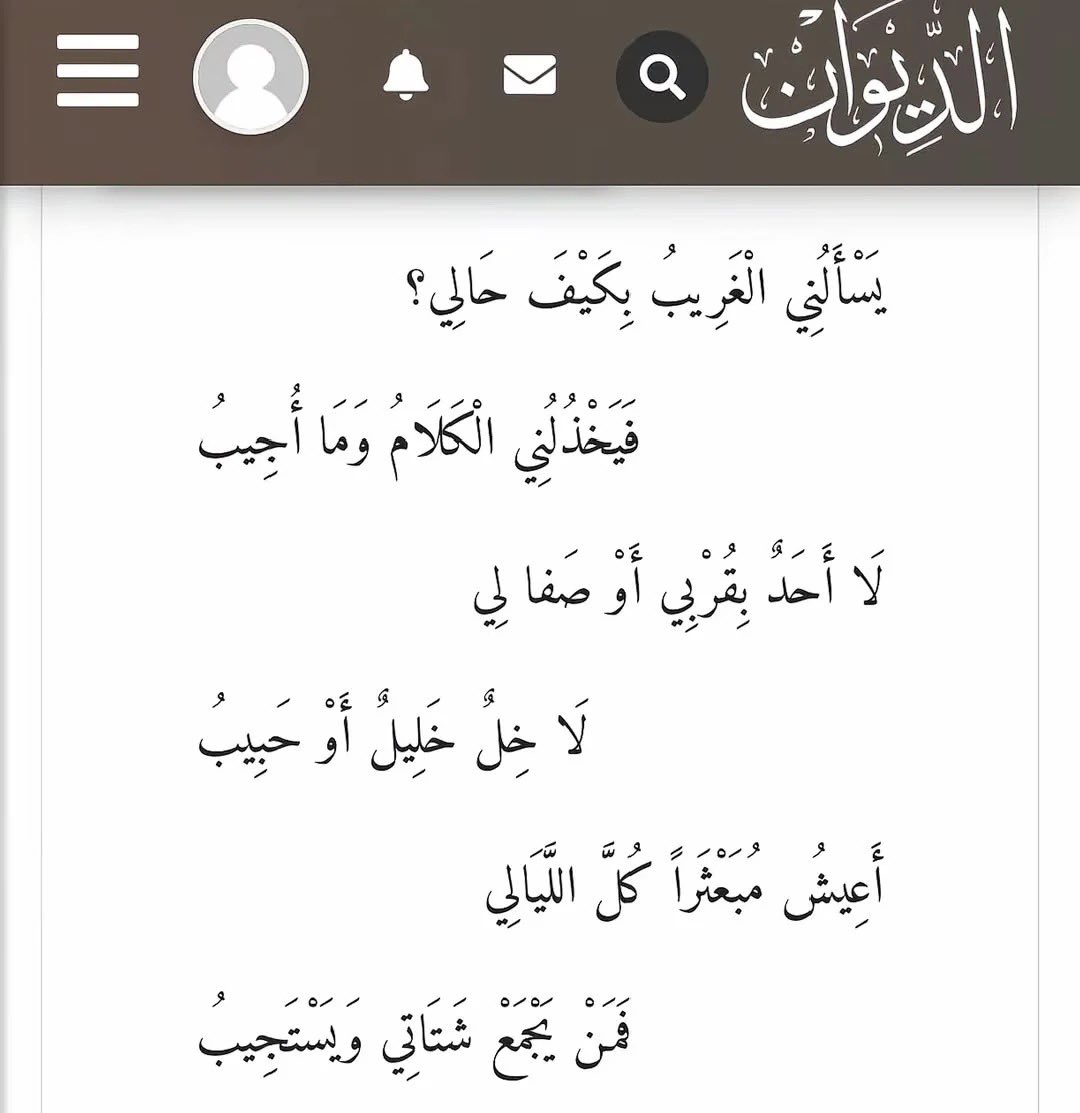 الدِّيوَان
يَسْأَلُنِي الْغَرِيبُ بِكَيْفَ حَالِي؟
فَيَخْذُلُنِي الْكَلَامُ وَمَا أُجِيبُ
لَا أَحَدٌ بِقُرْبِي أَوْ صَفا لِي
لَا خِلٌ خَلِيلٌ أَوْ حَبِيبُ
أَعِيشُ مُبَعْثَراً كُلَّ اللَّيَالِي
فَمَنْ يَجْمَعْ شَتَاتِي وَيَسْتَجِيبُ